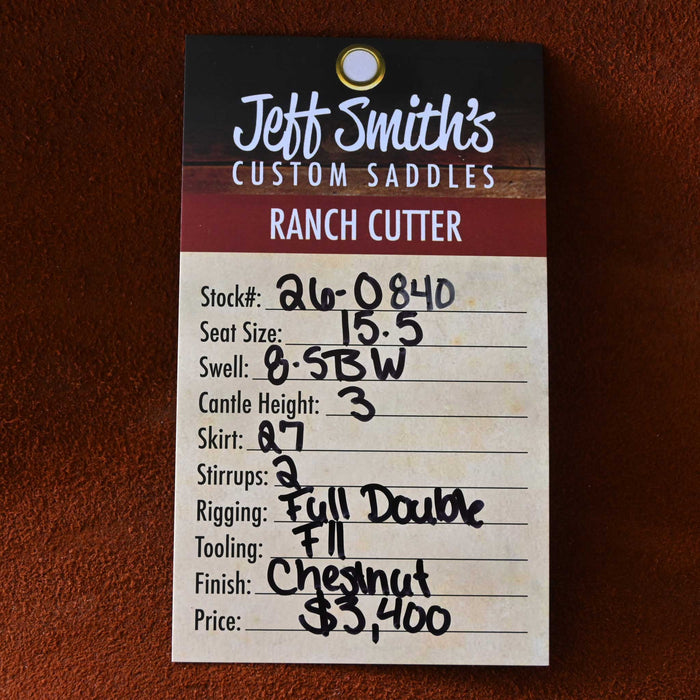 Jeff Smith's
CUSTOM SADDLES
RANCH CUTTER
Stock#: 26-0840
Seat Size: 15.5
Swell: 8.5BW
Cantle Height: 3
Skirt: 27
Stirrups: 2
Rigging: Full Double
Tooling: F11
Finish: Chestnut
Price: $3,400